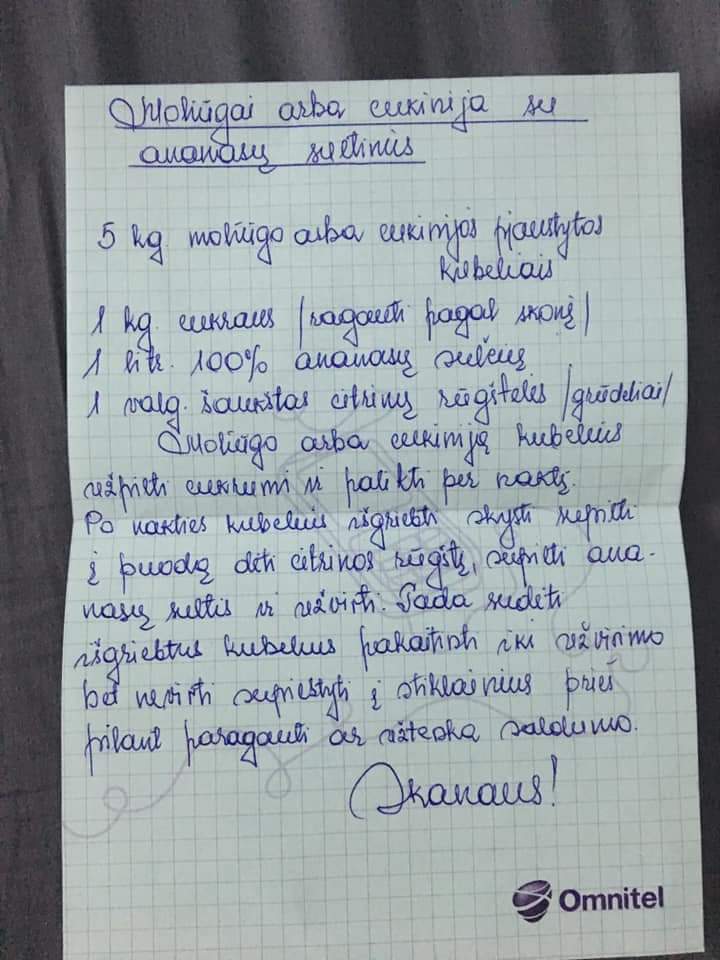 Moliūgai arba cukinija su
ananasų sultimis
5 kg. moliūgo arba cukinijos pjaustytos
kubeliais
1 kg. cukraus /ragauti pagal skonį/
1 litr. 100% ananasų sulčių
1 valg. šaukštas citrinų rūgštelės /grūdeliai/
Moliūgo arba cukinijų kubelius
užpilti cukrumi ir palikti per naktį.
Po nakties kubelius išgriebti skystį supilti
į puodą dėti citrinos rūgštį, supilti ana-
nasų sultis ir užvirti. Tada sudėti
išgriebtus kubelius pakaitinti iki užvirimo
bet nevirti supilstyti į stiklainius prieš
pilant paragauti ar užtenka saldumo.
Skanaus!
Omnitel